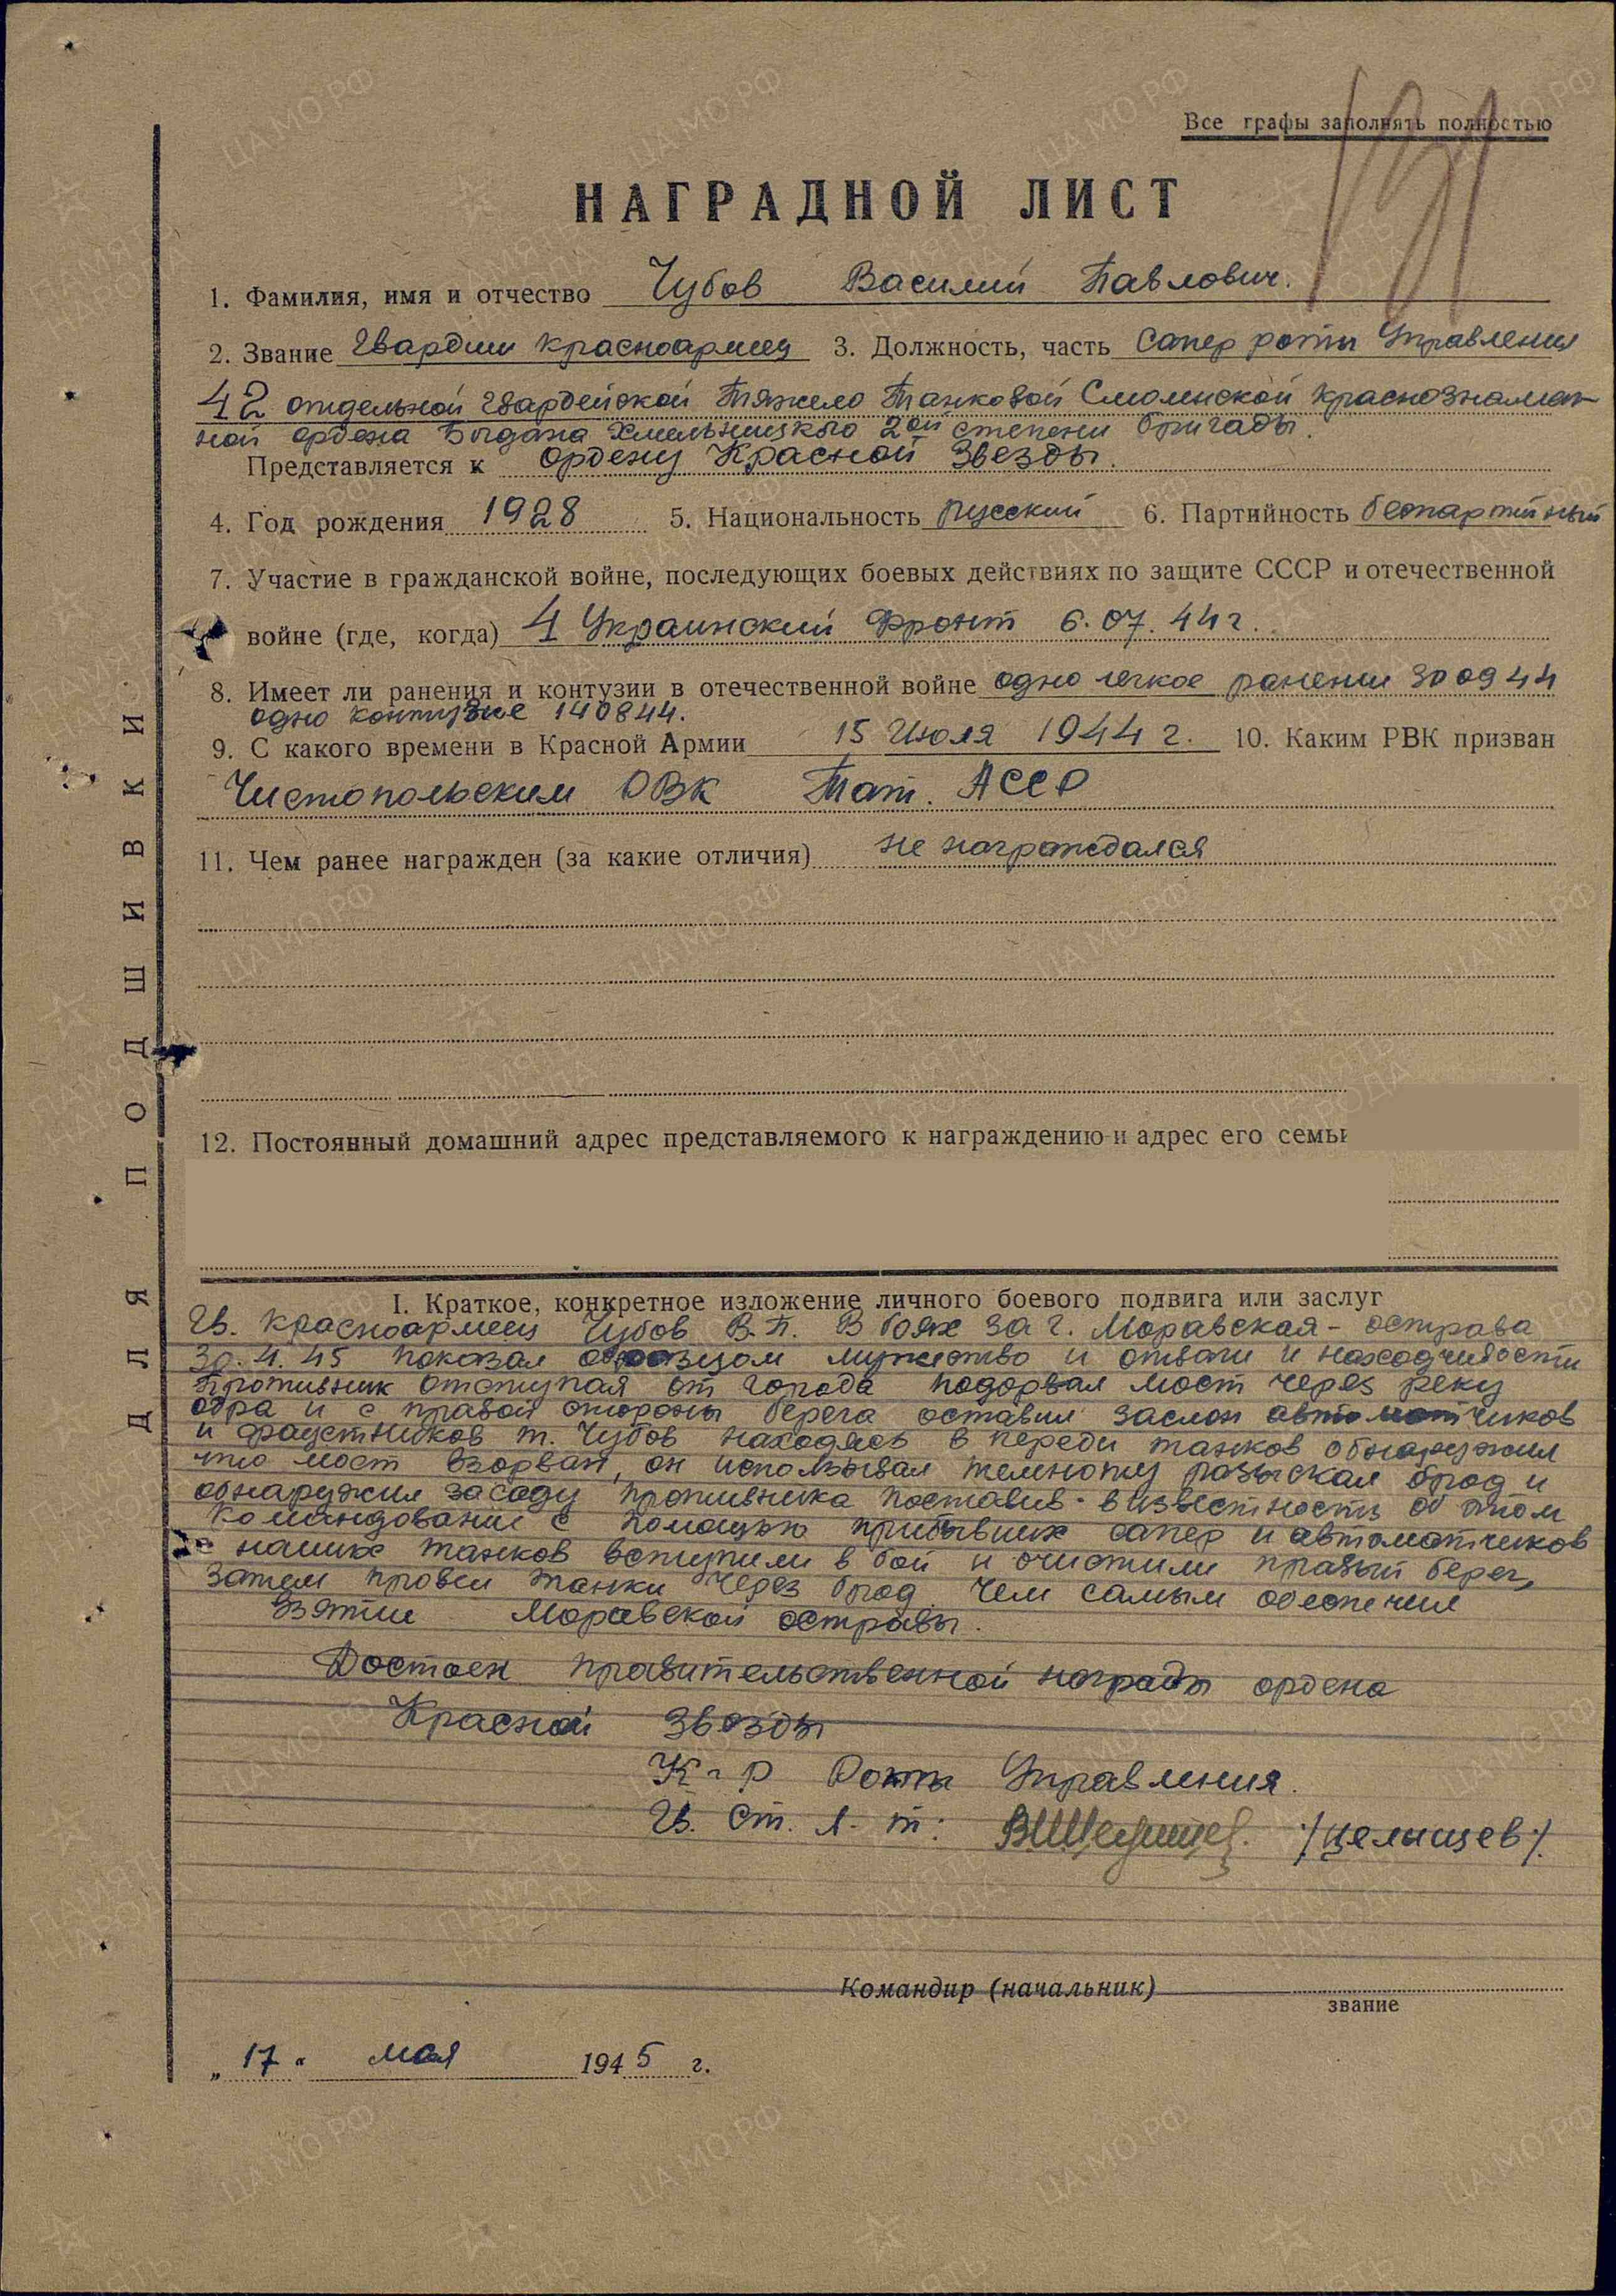 Все графы заполнять полностью
НАГРАДНОЙ ЛИСТ
1. Фамилия, имя и отчество Чубов Василий Павлович.
2. Звание Гвардии красноармеец 3. Должность, часть Сапер роты Управления
42 отдельной Гвардейской Тяжело Танковой Смоленской краснознамен-
ной ордена Богдана Хмельницкого 2ой степени бригады.
Представляется к ордену Красной Звезды.
4. Год рождения 1928 5. Национальность русский 6. Партийность беспартийный
7. Участие в гражданской войне, последующих боевых действиях по защите СССР и отечественной
войне (где, когда) 4 Украинский Фронт 6.07.44 г.
8. Имеет ли ранения и контузии в отечественной войне одно легкое ранении 30 09 44
одно контузие 140844.
9. С какого времени в Красной Армии 15 Июля 1944 г. 10. Каким РВК призван
Чистопольским РВК Тат. АССР
11. Чем ранее награжден (за какие отличия) не награждался
12. Постоянный домашний адрес представляемого к награждению и адрес его семьи
I. Краткое, конкретное изложение личного боевого подвига или заслуг
Гв. красноармеец Чубов В.П. В боях за г. Моравская-острава
30.4.45 показал образцом мужество и отваги и находчивости
Противник отступая от города подорвал мост через реку
одра и с правой стороны берега оставил заслон автоматчиков
и фаустников т. Чубов находясь в переди танков обнаружил
что мост взорван, он использывал темноту разыскал брод и
обнаружил засаду противника поставив в известность об этом
Командование с помощью прибывших сапер и автоматчиков
с наших танков вступили в бой и очистили правый берег,
затем провел танки через брод. Чем самым обеспечил
взятие Моравской остравы.
Достоен правительственной награды ордена
Красной Звезды
К-р Роты Управления.
Гв. Ст. л-т: /Целищев/.
Командир (начальник)
звание
„17“ мая 1945 г.
ДЛЯ ПОДШИВКИ
ПАМЯТЬ НАРОДА
ЦАМО.РФ